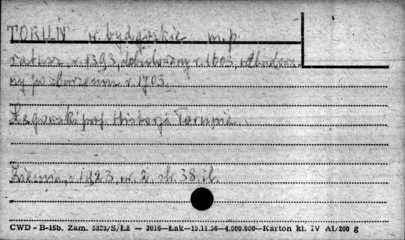 TORUŃ w. bydgoskie m.p.
ratusz r. 1393, dobudowany r. 1603, odbudowa
ny po zburzeniu r. 1703.
Łęgowski prof. Historja Torunia
Ziemia, 1923, nr. 2, str. 38, il.
CWD - B-15b. Zam. 5323/S/Łż — 3016—Łak—15.11.56—4.000.000—Karton kl. IV A1/200 g